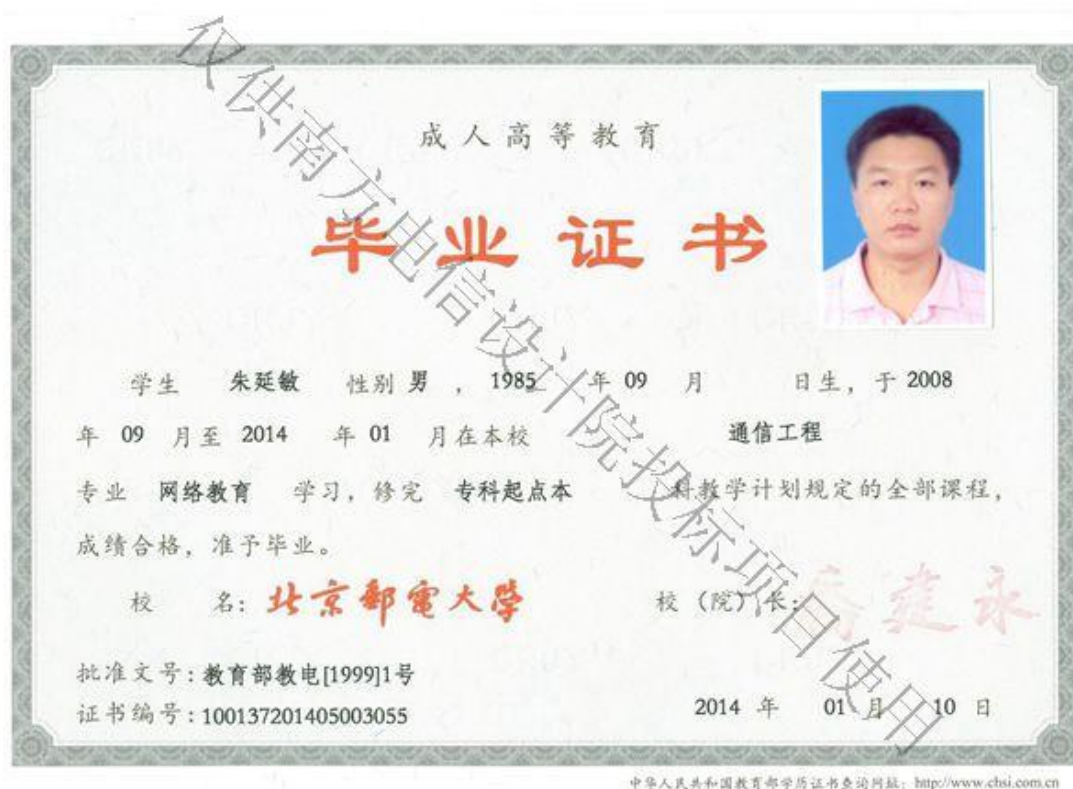 成人高等教育
毕业证书
学生 朱延敏 性别 男 , 1985 年 09 月 日生, 于 2008
年 09 月至 2014 年 01 月在本校 通信工程
专业 网络教育 学习, 修完 专科起点本 科教学计划规定的全部课程,
成绩合格, 准予毕业。
校 名: 北京郵電大學 校 (院) 长: 乔建永
批准文号: 教育部教电[1999]1号
证书编号: 100137201405003055 2014 年 01 月 10 日
中华人民共和国教育部学历证书查询网址: http://www.chsi.com.cn
仅供南方电信设计院投标项目使用